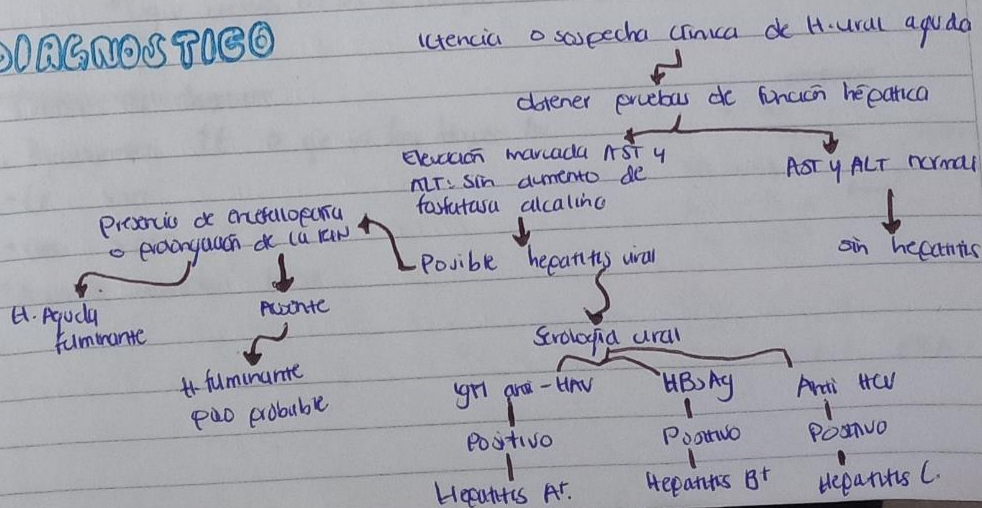 DIAGNOSTICO
Ictericia o sospecha clínica de H. viral aguda
obtener pruebas de función hépatica
Elevación marcada AST y
ALT: sin aumento de
fosfatasa alcalina
AST y ALT normal
sin hepatitis
Posible hepatitis viral
Presencia de encefalopatia
o prolongación de la
H. Aguda
fulminante
Ausente
H. fulminante
poco probable
Serología viral
IgM anti-HAV
Positivo
Hepatitis A+.
HBsAg
Positivo
Hepatitis B+
Anti HCV
Positivo
Hepatitis C.